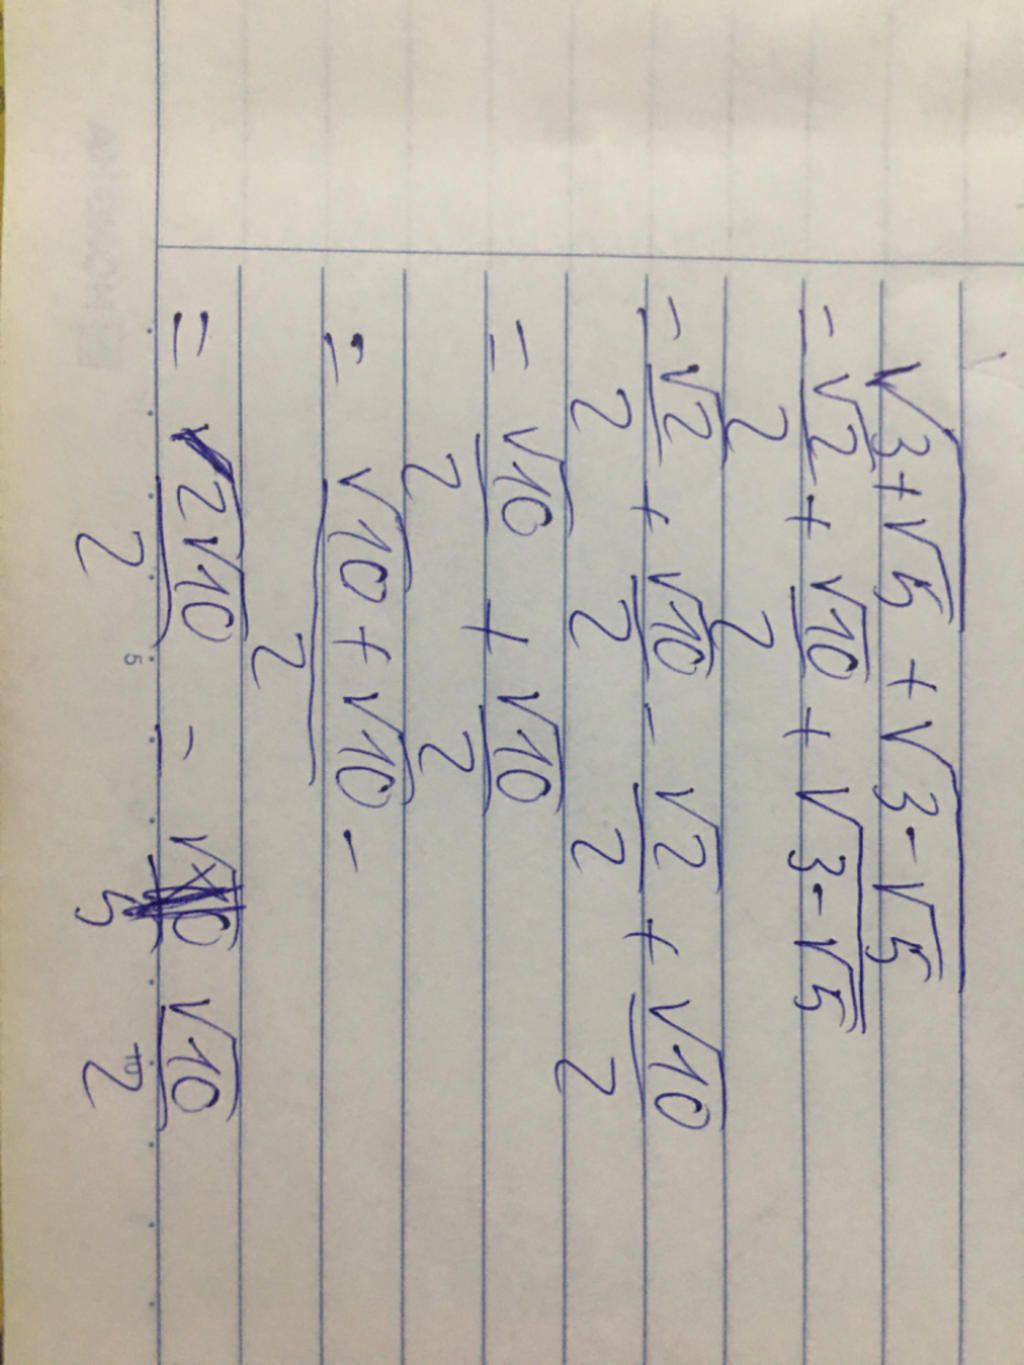 √(3+√5) + √(3-√5)
= √2/2 + √10/2 + √(3-√5)
= √2/2 + √10/2 - √2/2 + √10/2
= √10/2 + √10/2
= (√10 + √10)/2 -
= 2√10/2 = √10/2
5 10